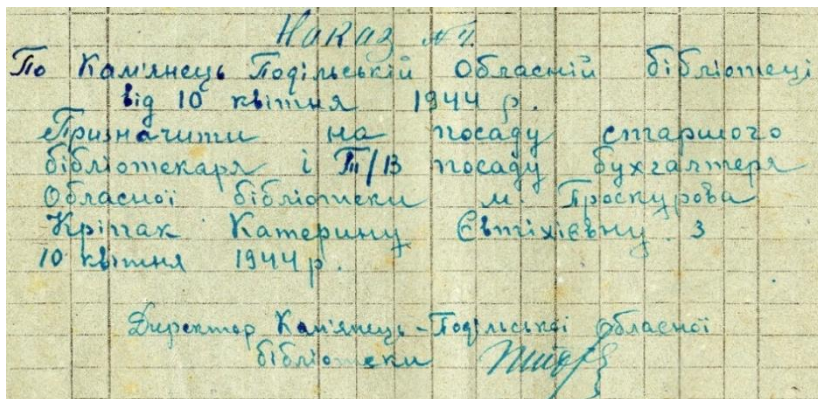 Наказ №1.
По Кам'янець Подільській Обласній бібліотеці
від 10 квітня 1944 р.
Призначити на посаду старшого
бібліотекаря і Т/В посаду бухгалтера
Обласної бібліотеки м. Проскурова
Кріпак Катерину Євтіхієвну з
10 квітня 1944 р.
Директор Кам'янець-Подільської Обласної
бібліотеки